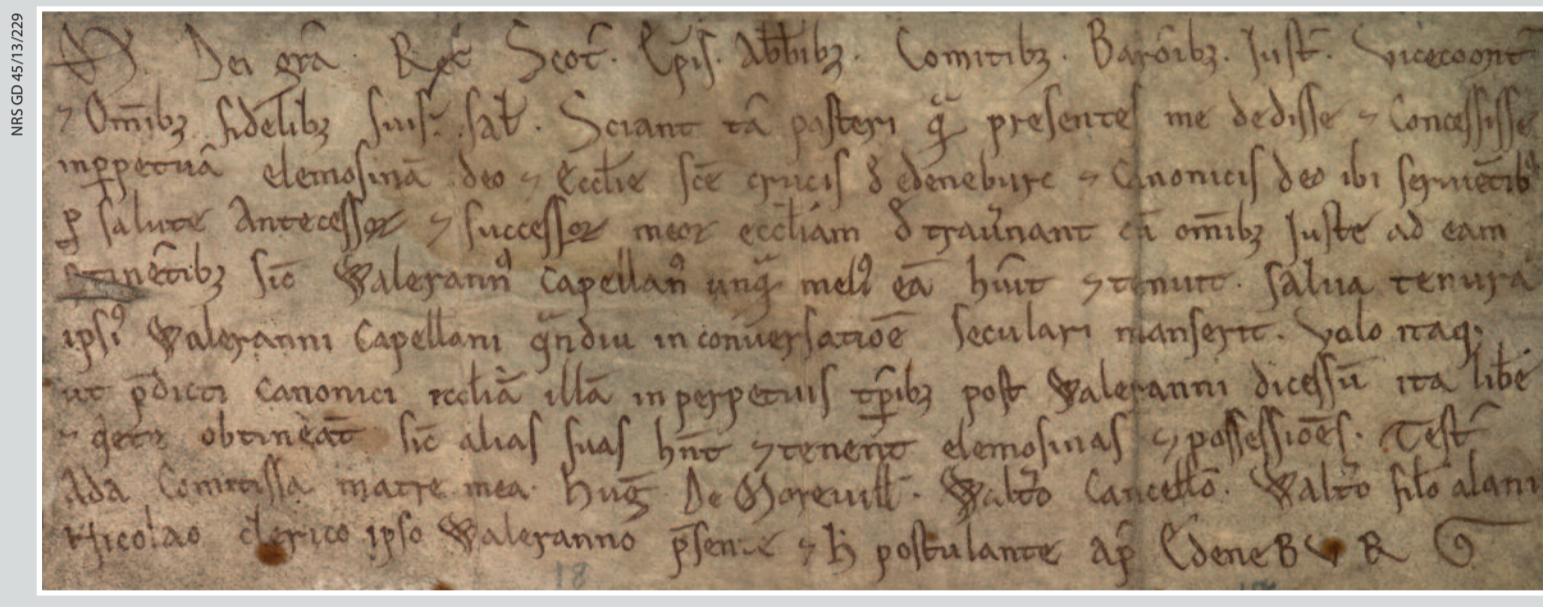 NRS GD 45/13/229
M̃. Dei gr̃a. Rex̃ Scot̃. Ep̃is. Abb̃ibꝫ. Comitibꝫ. Barõibꝫ. Just̃. Vicecom̃t
⁊ Om̃ibꝫ fidelibꝫ suis. sal̃t. Sciant tã posteri q̃ presentes me dedisse ⁊ Concessisse
inꝑpetuã elemosinã deo ⁊ Eccl̃ie sc̃e crucis đ edeneburc ⁊ Canonicis deo ibi seruiẽtibꝰ
ꝓ salute Antecessoꝝ ⁊ successoꝝ meoꝝ eccl̃iam đ trau̾nant cũ om̃ibꝫ Juste ad eam
ꝑtinẽtibꝫ sic̃ Walerannꝰ Capellanꝰ unq̃ melꝰ eã hũit ⁊ tenuit. salua tenura
ipsiꝰ Waleranni Capellani q̃ndiu in conuersatiõe seculari manserit. Volo itaqꝫ
ut p̃dicti Canonici eccl̃iã illã in perpetuis tp̃ribꝫ post Waleranni dicessũ ita libẽ
⁊ q̇ete obtineãt sic̃ alias suas hñt ⁊ tenent elemosinas ⁊ possessiões. Test̃
Ada Comitissa matre mea. Hug̃ De Moreuill̃. Walt̃o Cancell̃o. Walt̃o fil̃o alani
Nicolao clerico ipso Waleranno p̃sente ⁊ h̃ postulante ap̃ EdeneBVR G
18